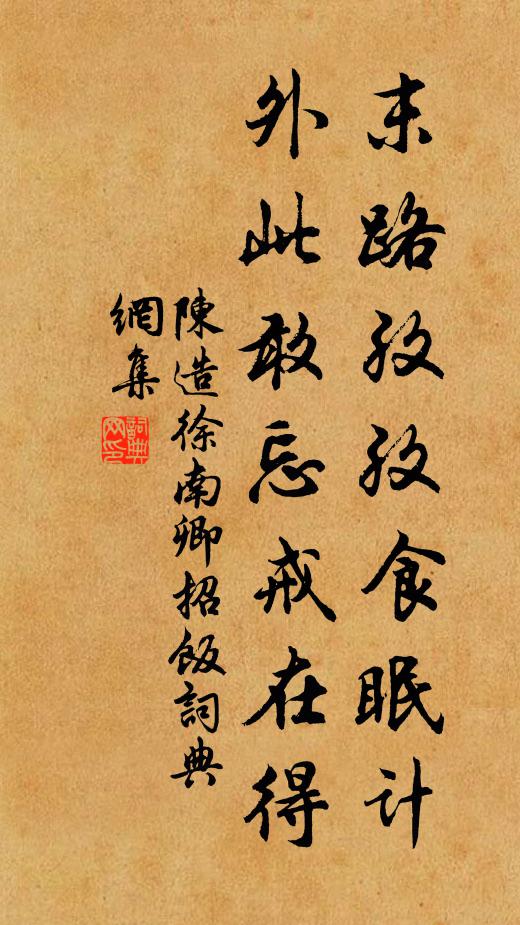 末路孜孜食眠计
外此敢忘戒在得
陳造徐南卿招飯詞典
網集
詞典网印